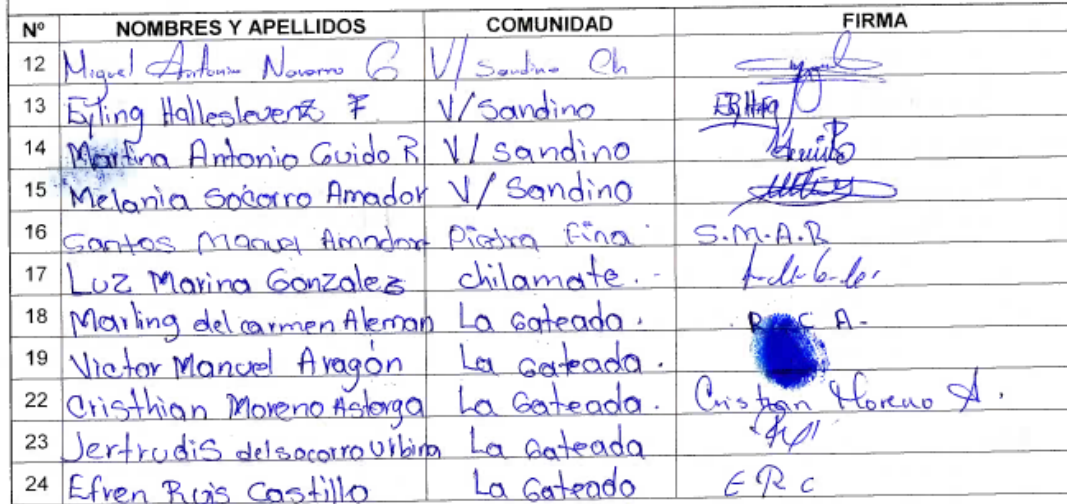 Nº NOMBRES Y APELLIDOS COMUNIDAD FIRMA
12 Miguel Antonio Navarro G V/ Sandino Ch
13 Eyling Halleslevenz F V/Sandino
14 Martina Antonio Guido R V/ sandino
15 Melania Socorro Amador V/ Sandino
16 Santos Manuel Amador Piedra Fina S.M.A.R
17 Luz Marina Gonzalez chilamate.
18 Marling del carmen Aleman La Gateada. C A.
19 Victor Manuel Aragón La Gateada.
22 Cristhian Moreno Astorga La Gateada. Cristhian Moreno A.
23 Jertrudis del socorro Urbina La Gateada
24 Efren Ruis Castillo La Gateado E R C